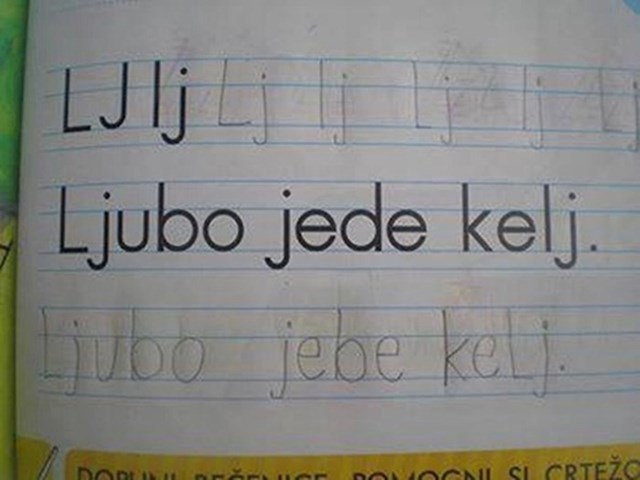 LJ lj Lj lj Lj lj Lj
Ljubo jede kelj.
Ljubo jebe kelj.
DOPUNI REČENICE. POMOGNI SI CRTEŽO